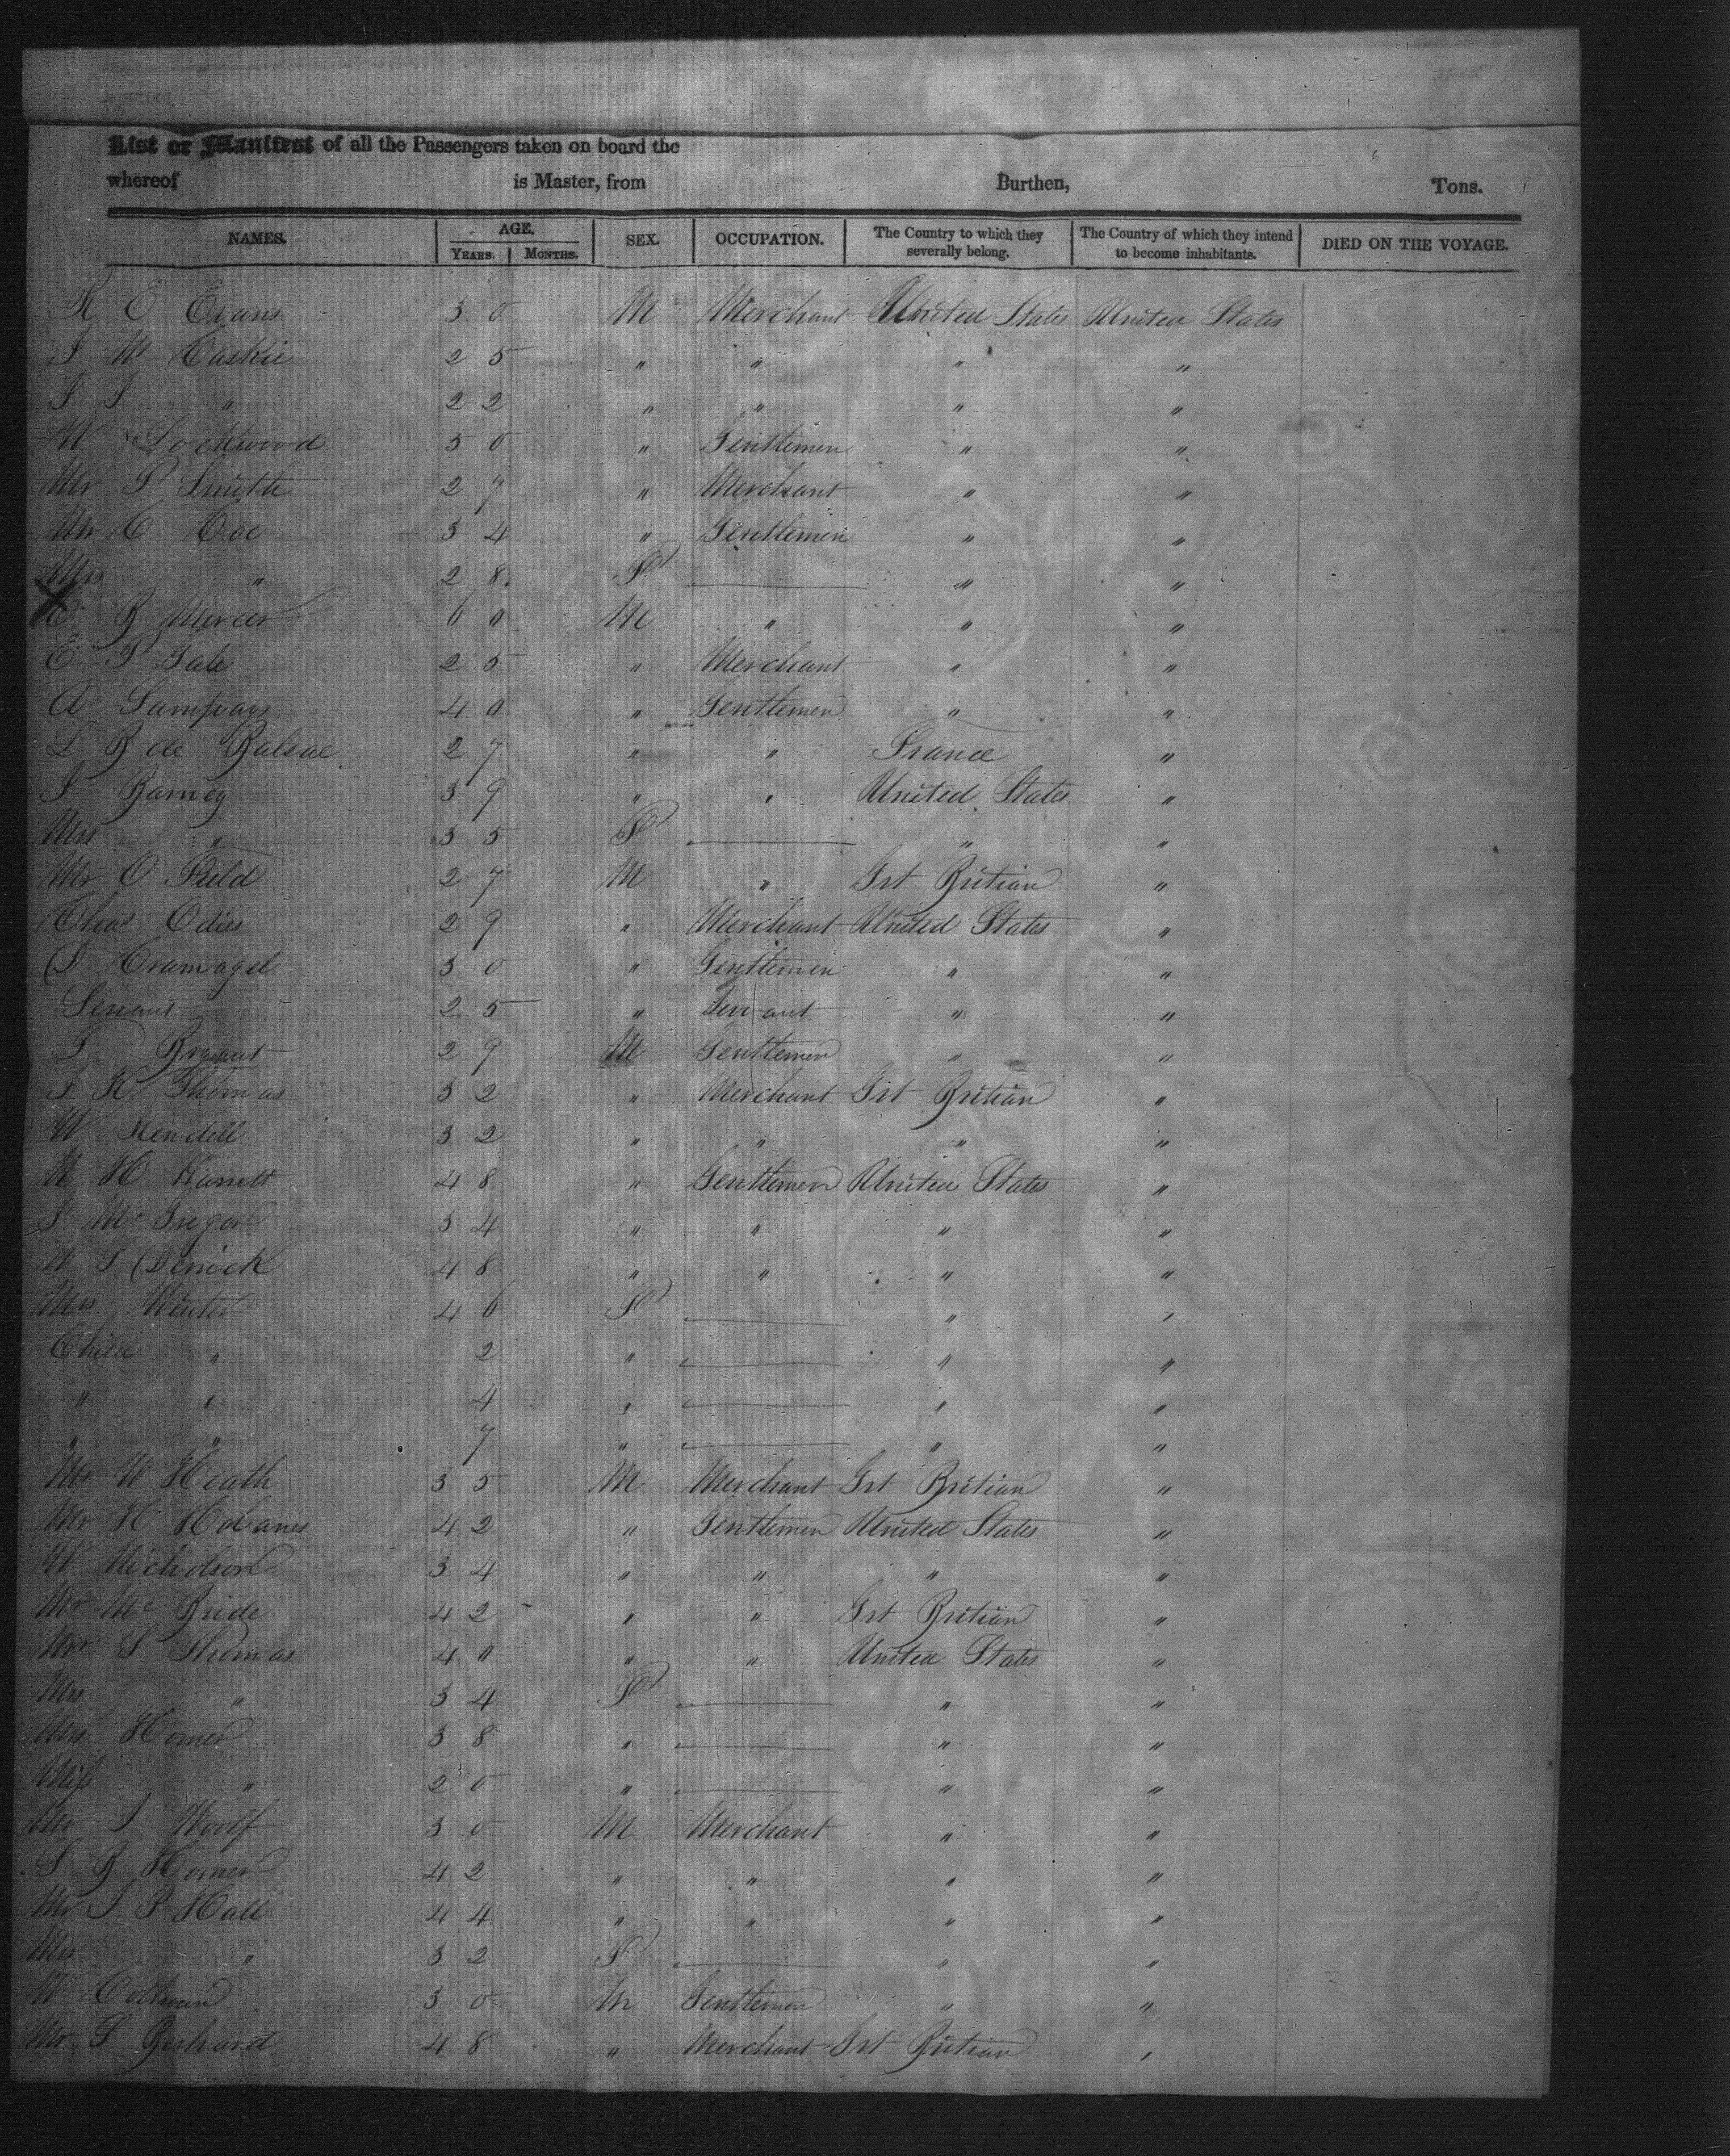 List or Manifest of all the Passengers taken on board the
whereof is Master, from Burthen, Tons.
NAMES. AGE. YEARS. MONTHS. SEX. OCCUPATION. The Country to which they severally belong. The Country of which they intend to become inhabitants. DIED ON THE VOYAGE.
R E Evans 30 M Merchant United States United States
J W Caskie 25 " " " "
J J " 22 " " " "
W Lockwood 50 " Gentlemen " "
Mr P Smith 27 " Merchant " "
Mr C Coe 34 " Gentlemen " "
Mrs " 28. F " "
X C B Mercer 60 M " " "
E P Gale 25 " Merchant " "
A Sampays 40 " Gentlemen " "
L B de Balsac 27 " " France "
J Barney 39 " " United States "
Mrs " 35 F " "
Mr O Field 27 M " Grt Britian "
Chas Odies 29 " Merchant United States "
D Cramagel 30 " Gentlemen " "
Servant 25 " Servant " "
J Bryant 29 M Gentlemen " "
J K Thomas 32 " Merchant Grt Britian "
W Kendell 32 " " " "
W H Harrett 48 " Gentlemen United States "
J McGregor 34 " " " "
W J Derrick 48 " " " "
Mrs Winter 46 F " "
Child " 2 " " "
" " 4 " " "
" " 7 " " "
Mr W Heath 35 M Merchant Grt Britian "
Mr H 42 " Gentlemen United States "
W Nicholson 34 " " " "
Mr Mc Bride 42 " " Grt Britian "
Mr S Thomas 40 " " United States "
Mrs " 34 F " "
Mrs Homer 38 " " "
Miss " 20 " " "
Mr J Woolf 30 M Merchant " "
S B Homer 42 " " " "
Mr J P Hall 44 " " " "
Mrs " 32 F " "
W Colhoun 30 M Gentlemen " "
Mr S 48 " Merchant Grt Britian "